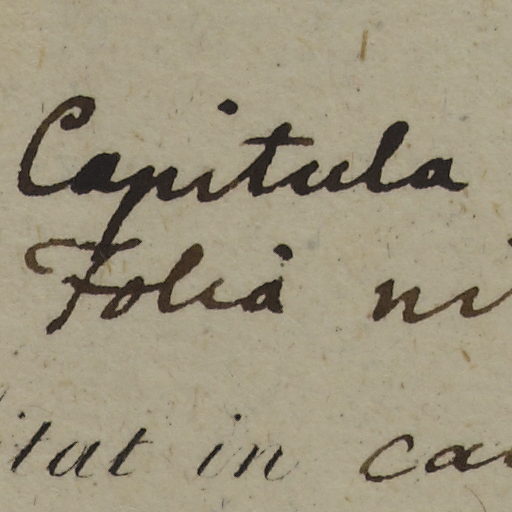 Capitula
Folia ni
itat in ca